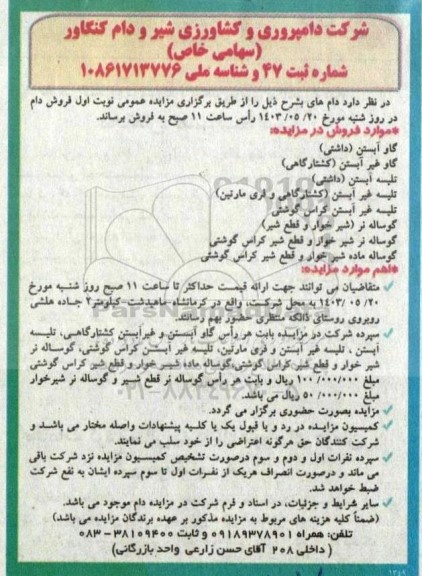 شرکت دامپروری و کشاورزی شیر و دام کنگاور
(سهامی خاص)
شماره ثبت ۴۷ و شناسه ملی ۱۰۸۶۱۷۱۳۷۷۶
در نظر دارد دام های بشرح ذیل را از طریق برگزاری مزایده عمومی نوبت اول فروش دام
در روز شنبه مورخ ۲۰/ ۰۵/ ۱۴۰۳ رأس ساعت ۱۱ صبح به فروش برساند.
*موارد فروش در مزایده:
گاو آبستن (داشتی)
گاو غیر آبستن (کشتارگاهی)
تلیسه آبستن (داشتی)
تلیسه غیر آبستن (کشتارگاهی و فری مارتین)
تلیسه غیر آبستن کراس گوشتی
گوساله نر (شیر خوار و قطع شیر)
گوساله نر شیر خوار و قطع شیر کراس گوشتی
گوساله ماده شیر خوار و قطع شیر کراس گوشتی
*اهم موارد مزایده:
✓ متقاضیان می توانند جهت ارائه قیمت حداکثر تا ساعت ۱۱ صبح روز شنبه مورخ
۲۰/ ۰۵/ ۱۴۰۳ به محل شرکت، واقع در کرمانشاه- ماهیدشت-کیلومتر۲ جاده هلشی
روبروی روستای ذالکه منتظری حضور بهم رسانند
✓ سپرده شرکت در مزایده بابت هر رأس گاو آبستن و غیرآبستن کشتارگاهی، تلیسه
آبستن ، تلیسه غیر آبستن و فری مارتین، تلیسه غیر آبستن کراس گوشتی، گوساله نر
شیر خوار و قطع شیر کراس گوشتی،گوساله ماده شیر خوار و قطع شیر کراس گوشتی
مبلغ ۱۰۰/۰۰۰/۰۰۰ ریال و بابت هر رأس گوساله نر قطع شیر و گوساله نر شیرخوار
مبلغ ۵۰/۰۰۰/۰۰۰ ریال می باشد.
✓ مزایده بصورت حضوری برگزار می گردد.
✓ کمیسیون مزایده در رد و یا قبول یک یا کلیه پیشنهادات واصله مختار می باشد و
شرکت کنندگان حق هرگونه اعتراضی را از خود سلب می نمایند.
✓ سپرده نفرات اول و دوم و سوم درصورت تشخیص کمیسیون مزایده نزد شرکت باقی
می ماند و درصورت انصراف هریک از نفرات اول تا سوم سپرده ایشان به نفع شرکت
ضبط خواهد شد.
✓ سایر شرایط و جزئیات، در اسناد و فرم شرکت در مزایده دام موجود می باشد.
(ضمناً کلیه هزینه های مربوط به مزایده مذکور بر عهده برندگان مزایده می باشد)
تلفن: همراه ۰۹۱۸۹۳۷۸۹۰۱ و ثابت ۳۸۱۰۹۴۰۰ - ۰۸۳
( داخلی ۲۰۸ آقای حسن زارعی واحد بازرگانی)